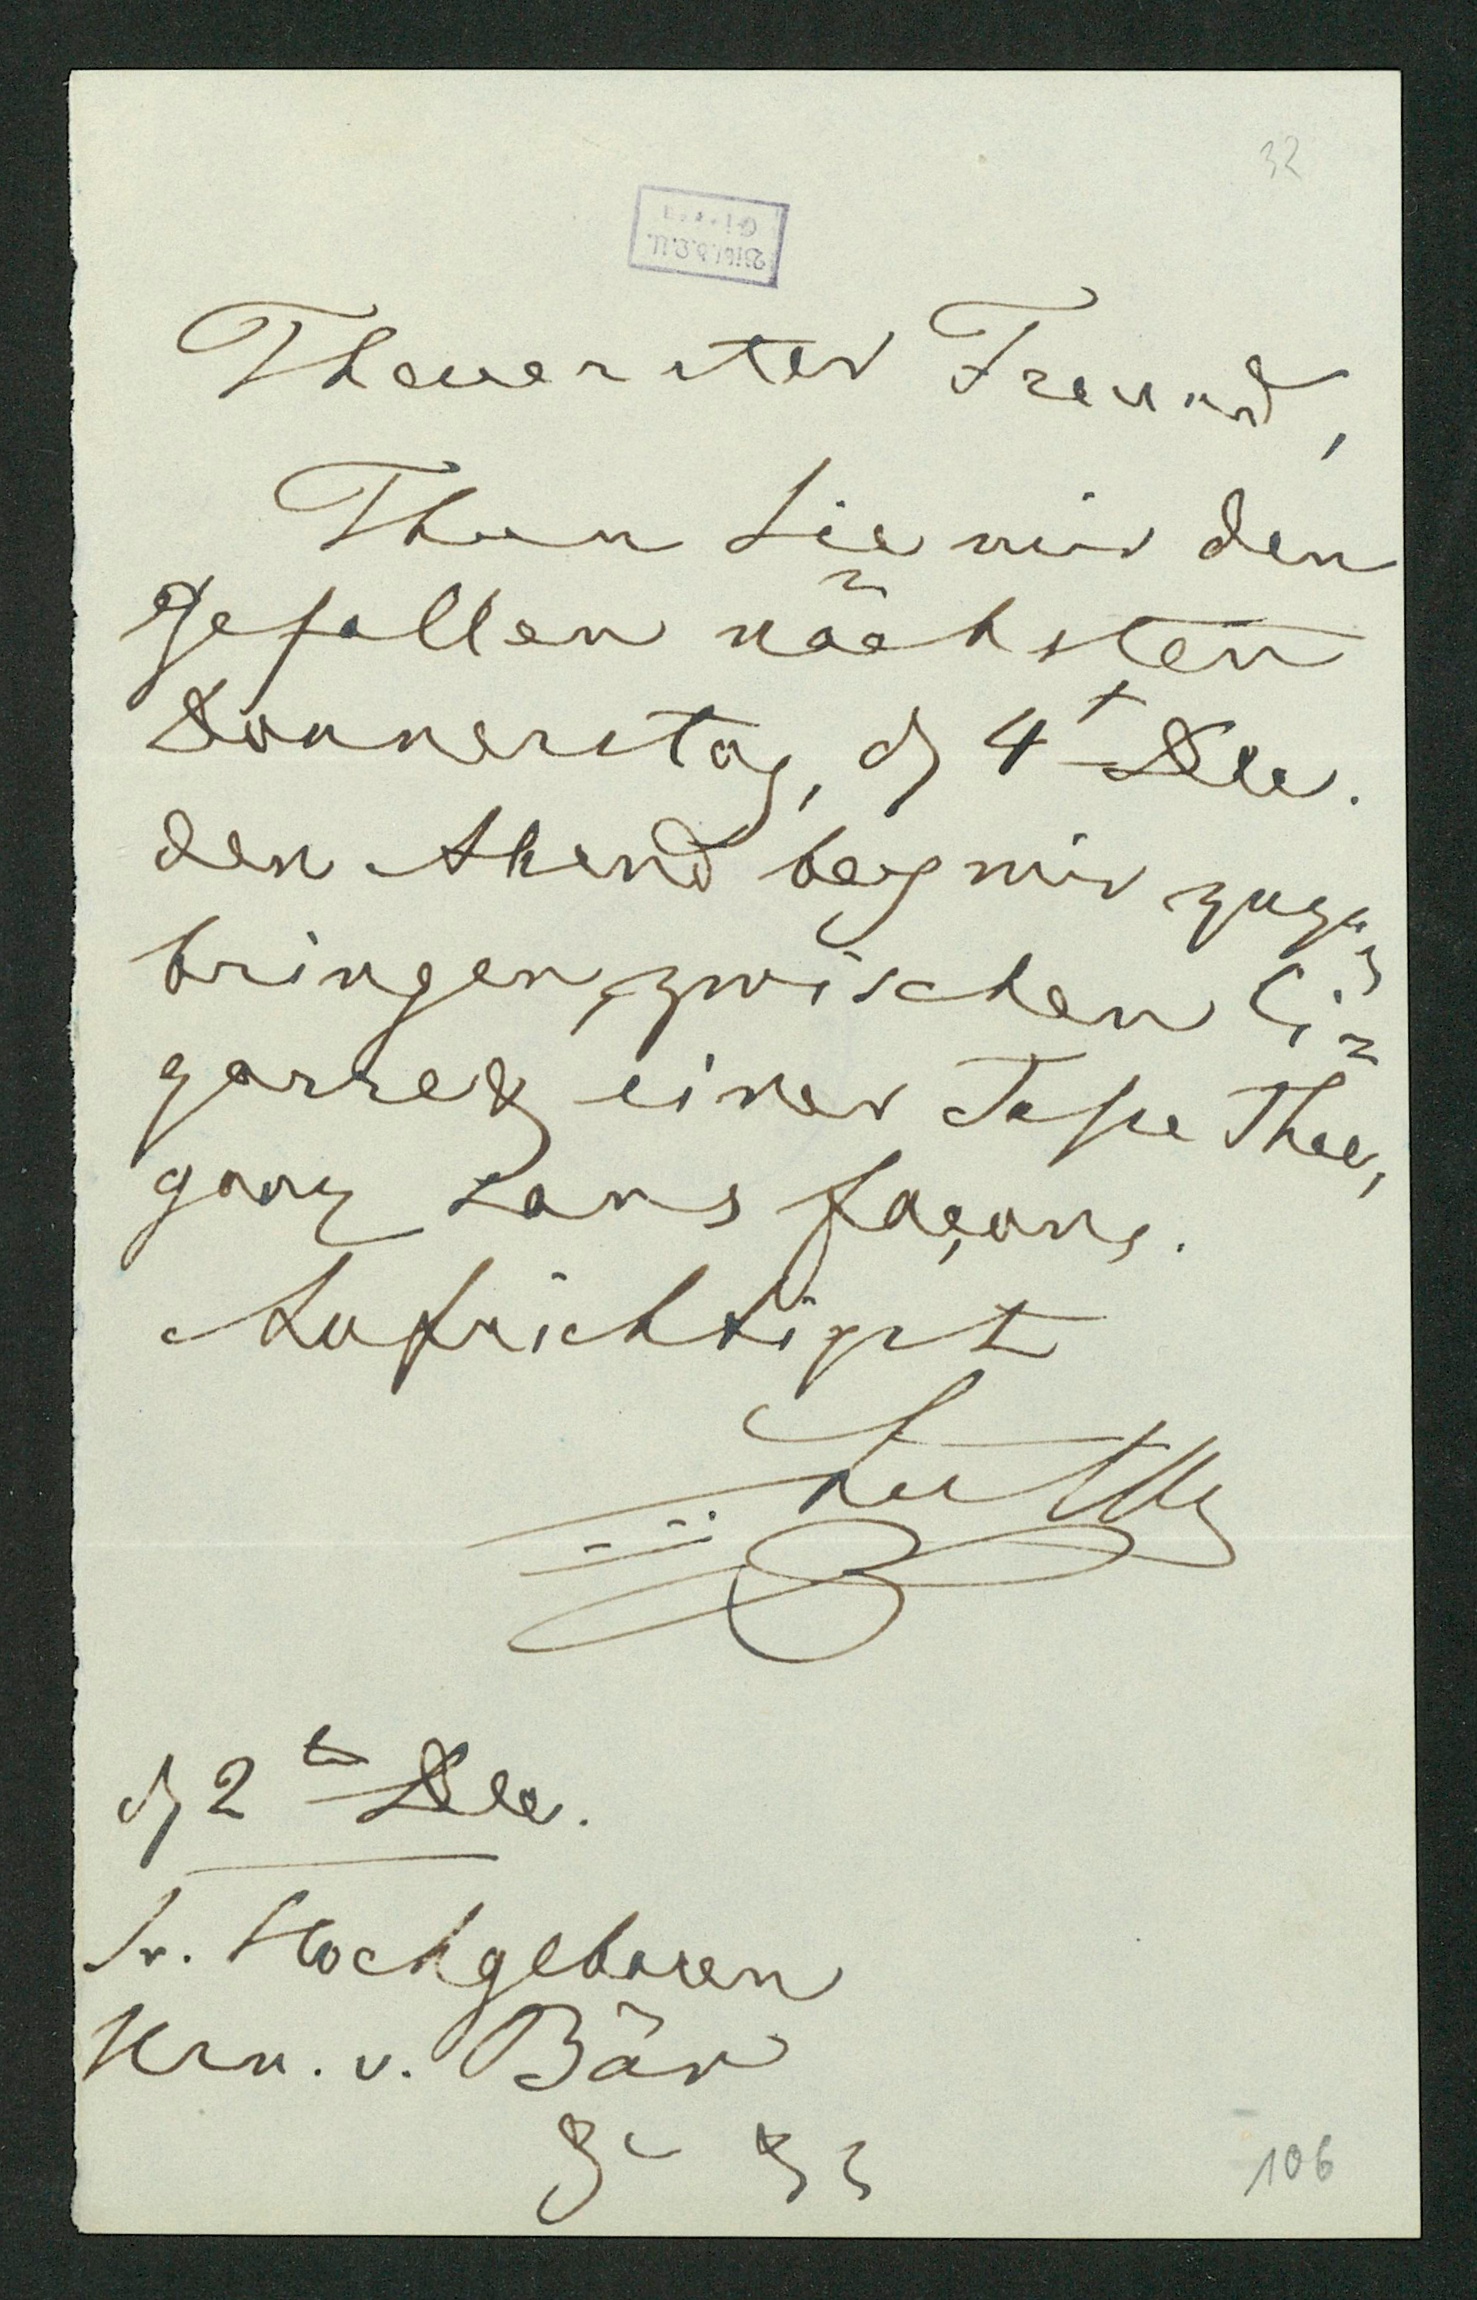 32
Bibl. d. L. U.
Giessen
Theuerster Freund,
Thun Sie mir den
Gefallen nächsten
Donnerstag, d 4t Dec.
den Abend bey mir zuzu=
bringen, zwischen Ci=
garre & einer Tasse Thee,
ganz sans façons.
Aufrichtigst
d 2tn Dec.
Sr. Hochgeboren
Hrn. v. Bär
&c &c
106